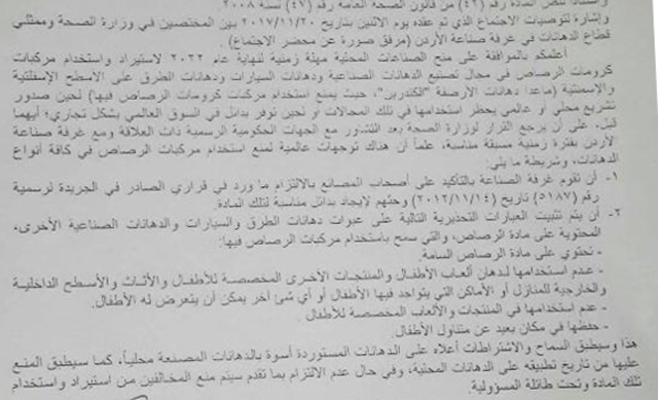 واستناداً لنص المادة رقم (٤٢) من قانون الصحة العامة رقم (٤٧) لسنة ٢٠٠٨
وإشارة لتوصيات الاجتماع الذي تم عقده يوم الاثنين بتاريخ ٢٠١٧/١١/٢٠ بين المختصين في وزارة الصحة وممثلي
قطاع الدهانات في غرفة صناعة الأردن (مرفق صورة عن محضر الاجتماع)
أعلمكم بالموافقة على منح الصناعات المحلية مهلة زمنية لنهاية عام ٢٠٢٢ لاستيراد واستخدام مركبات
كرومات الرصاص في مجال تصنيع الدهانات الصناعية ودهانات السيارات ودهانات الطرق على الاسطح الإسفلتية
والإسمنتية (ماعدا دهانات الأرصفة "الكندرين"، حيث يمنع استخدام مركبات كرومات الرصاص فيها) لحين صدور
تشريع محلي أو عالمي يحظر استخدامها في تلك المجالات او لحين توفر بدائل في السوق العالمي بشكل تجاري؛ أيهما
قبل. على أن يرجع القرار لوزارة الصحة بعد التشاور مع الجهات الحكومية الرسمية ذات العلاقة ومع غرفة صناعة
الأردن بفترة زمنية مسبقة مناسبة، علماً أن هناك توجهات عالمية لمنع استخدام مركبات الرصاص في كافة أنواع
الدهانات، وشريطة ما يلي:
١- أن تقوم غرفة الصناعة بالتأكيد على أصحاب المصانع بالالتزام بما ورد في قراري الصادر في الجريدة لرسمية
رقم (٥١٨٧) تاريخ (٢٠١٢/١١/١٤) وحثهم لإيجاد بدائل مناسبة لتلك المادة.
٢- أن يتم تثبيت العبارات التحذيرية التالية على عبوات دهانات الطرق والسيارات والدهانات الصناعية الأخرى،
المحتوية على مادة الرصاص، والتي سمح باستخدام مركبات الرصاص فيها:
- تحتوي على مادة الرصاص السامة.
- عدم استخدامها لدهان ألعاب الأطفال والمنتجات الأخرى المخصصة للأطفال والأثاث والأسطح الداخلية
والخارجية للمنازل أو الأماكن التي يتواجد فيها الأطفال أو أي شئ آخر يمكن أن يتعرض له الأطفال.
- عدم استخدامها في المنتجات والألعاب المخصصة للأطفال
- حفظها في مكان بعيد عن متناول الأطفال.
هذا وسيطبق السماح والاشتراطات أعلاه على الدهانات المستوردة أسوة بالدهانات المصنعة محلياً. كما سيطبق المنع
عليها من تاريخ تطبيقه على الدهانات المحلية، وفي حال عدم الالتزام بما تقدم سيتم منع المخالفين من استيراد واستخدام
تلك المادة وتحت طائلة المسؤولية.